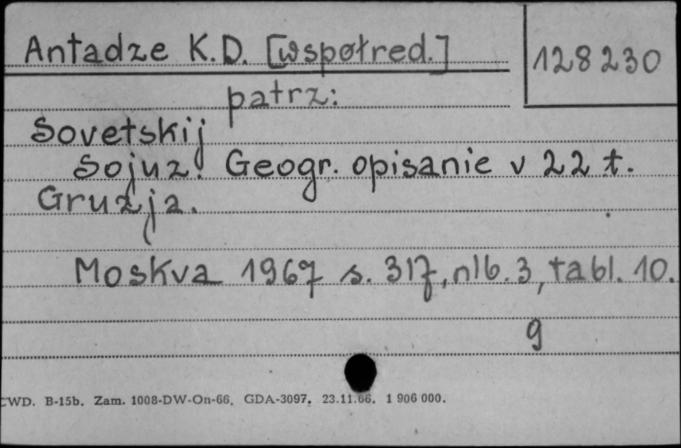 Antadze K.D. [współred.]
128230
patrz:
Sovetskij
Sojuz. Geogr. opisanie v 22 t.
Gruzja.
Moskva 1967 s. 317, nlb. 3, tabl. 10.
9
CWD. B-15b. Zam. 1008-DW-On-66. GDA-3097. 23.11.66. 1 906 000.